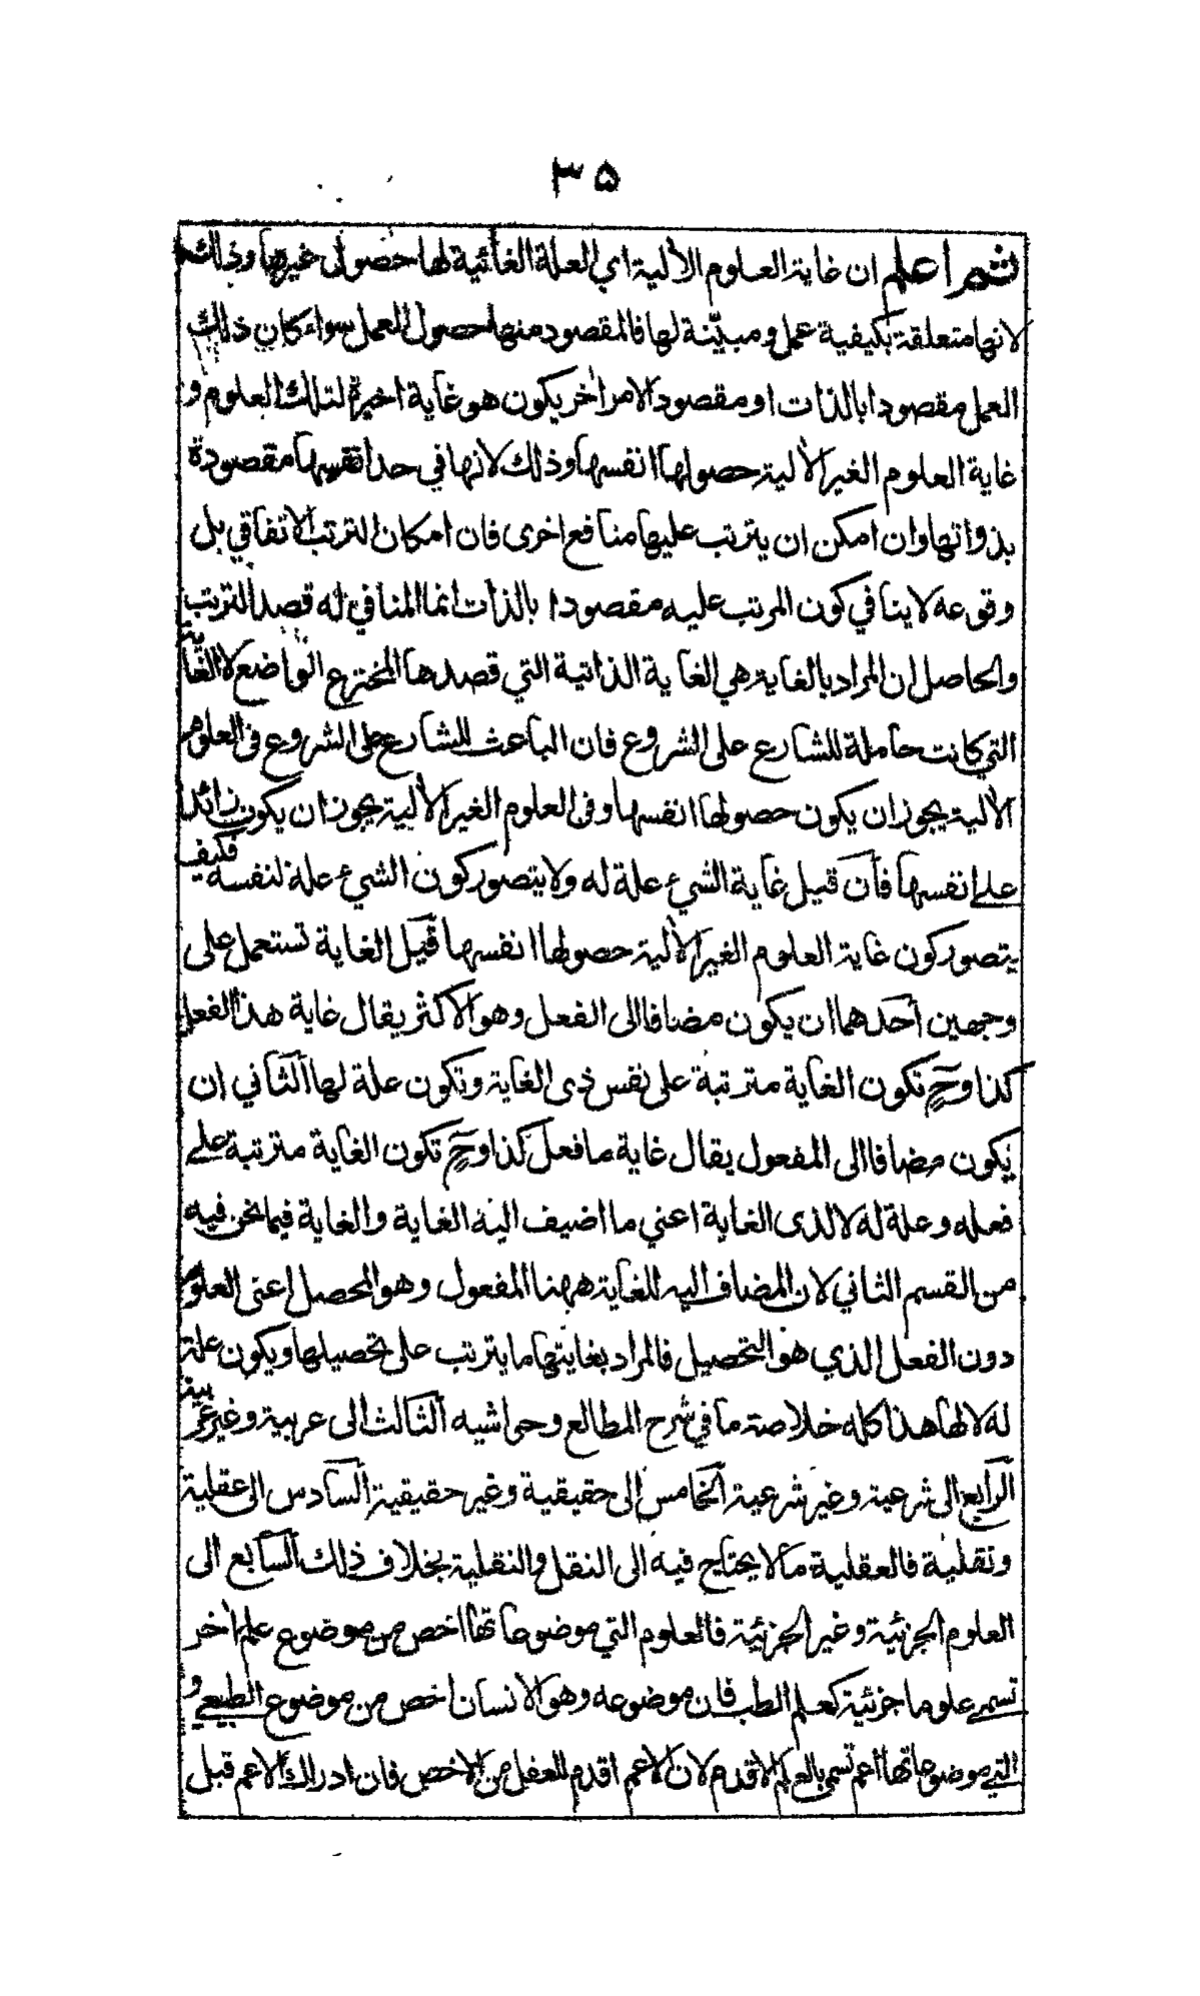 ٣٥
ثم اعلم ان غاية العلوم الآلية اي العلة الغائية لها حصول غيرها وذلك
لانها متعلقة بكيفية عمل ومبيّنة لها فالمقصود منها حصول العمل سواء كان ذلك
العمل مقصودا بالذات او مقصودا لامر اٰخر يكون هو غاية اخيرة لتلك العلوم و
غاية العلوم الغير الاٰلية حصولها انفسها وذلك لانها في حد انفسها مقصودة
بذواتها وان امكن ان يترتب عليها منافع اخرى فان امكان الترتب الاتفاقي بل
وقوعه لا ينافي كون المرتب عليه مقصودا بالذات انما المنافي له قصد الترتب
والحاصل ان المراد بالغاية هي الغاية الذاتية التي قصدها المخترع الواضع لا الغاية
التي كانت حاملة للشارع على الشروع فان الباعث للشارع على الشروع في العلوم
الاٰلية يجوز ان يكون حصولها انفسها وفى العلوم الغير الاٰلية يجوز ان يكون زائدا
على انفسها فآن قيل غاية الشيء علة له ولا يتصور كون الشيء علة لنفسه فكيف
يتصور كون غاية العلوم الغير الاٰلية حصولها انفسها قيل الغاية تستعمل على
وجهين آحدهما ان يكون مضافا الى الفعل وهو الاكثر يقال غاية هذا الفعل
كذا وحٓ تكون الغاية مترتبة على نفس ذى الغاية وتكون علة لها الثاني ان
يكون مضافا الى المفعول يقال غاية ما فعل كذا وحٓ تكون الغاية مترتبة على
فعله وعلة له لا لذى الغاية اعني ما اضيف اليه الغاية والغاية فيما نحن فيه
من القسم الثاني لان المضاف اليه للغاية ههنا المفعول وهو المحصل اعنى العلوم
دون الفعل الذي هو التحصيل فالمراد بغايتها ما يترتب على تحصيلها ويكون علة
له لا لها هذا كله خلاصة ما في شرح المطالع وحواشيه الثالث الى عربية وغير عربية
الرابع الى شرعية وغير شرعية الخامس الى حقيقية وغير حقيقية السادس الى عقلية
ونقلية فالعقلية ما لا يحتاج فيه الى النقل والنقلية بخلاف ذلك السابع الى
العلوم الجزئية وغير الجزئية فالعلوم التي موضوعاتها اخص من موضوع علم اٰخر
تسمى علوما جزئية كعلم الطب فان موضوعه وهو الانسان اخص من موضوع الطبيعي و
التي موضوعاتها اعم تسمى بالعلم الاقدم لان الاعم اقدم للعقل من الاخص فان ادراك الاعم قبل